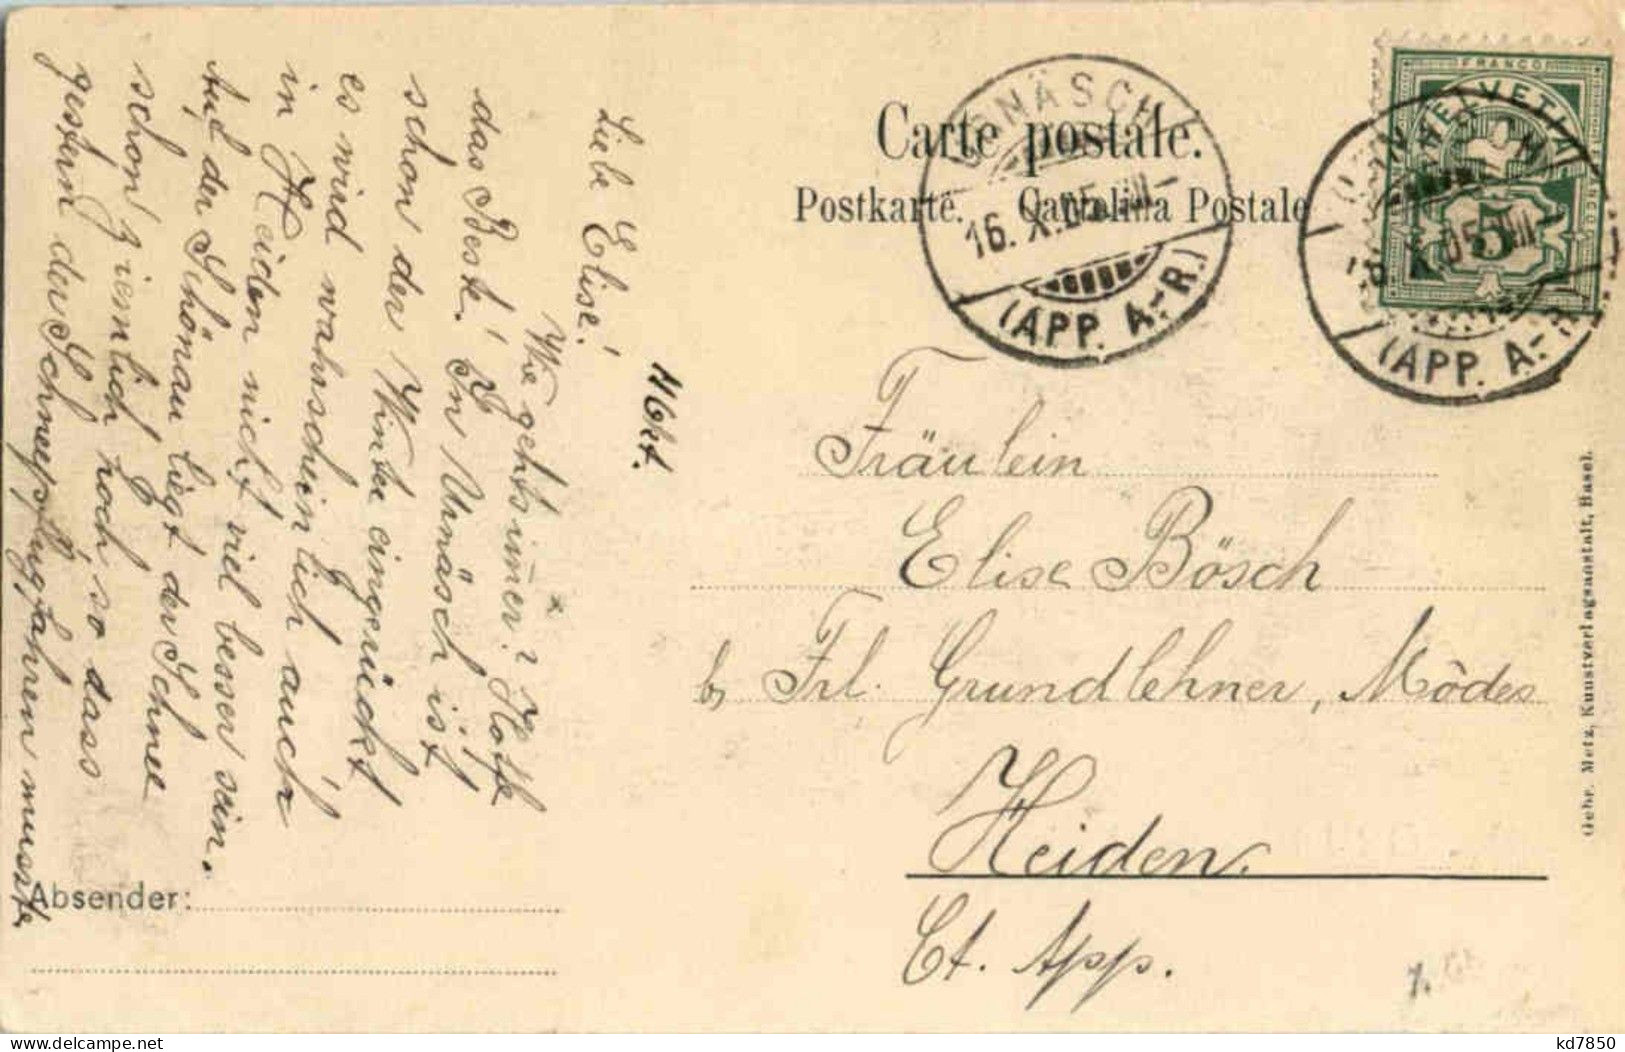 Carte postale.
Postkarte. Cartolina Postale
URNÄSCH
16. X. 05. VIII
(APP. A.-R.)
URNÄSCH
16. X. 05. VIII
(APP. A.-R.)
FRANCO
HELVETIA
5
Fräulein
Elise Bösch
b/ Frl. Grundlehner, Môdes
Heiden.
Ct. App.
Gebr. Metz, Kunstverlagsanstalt, Basel.
Absender:
16 Okt.
Liebe Elise!
Wie gehts immer? Hoffe
das Beste! In Urnäsch ist
schon der Winter eingerückt
es wird wahrscheinlich auch
in Heiden nicht viel besser sein.
Auf der Schönau liegt der Schnee
schon ziemlich hoch, so dass
gestern der Schneepflug fahren musste
kd7850